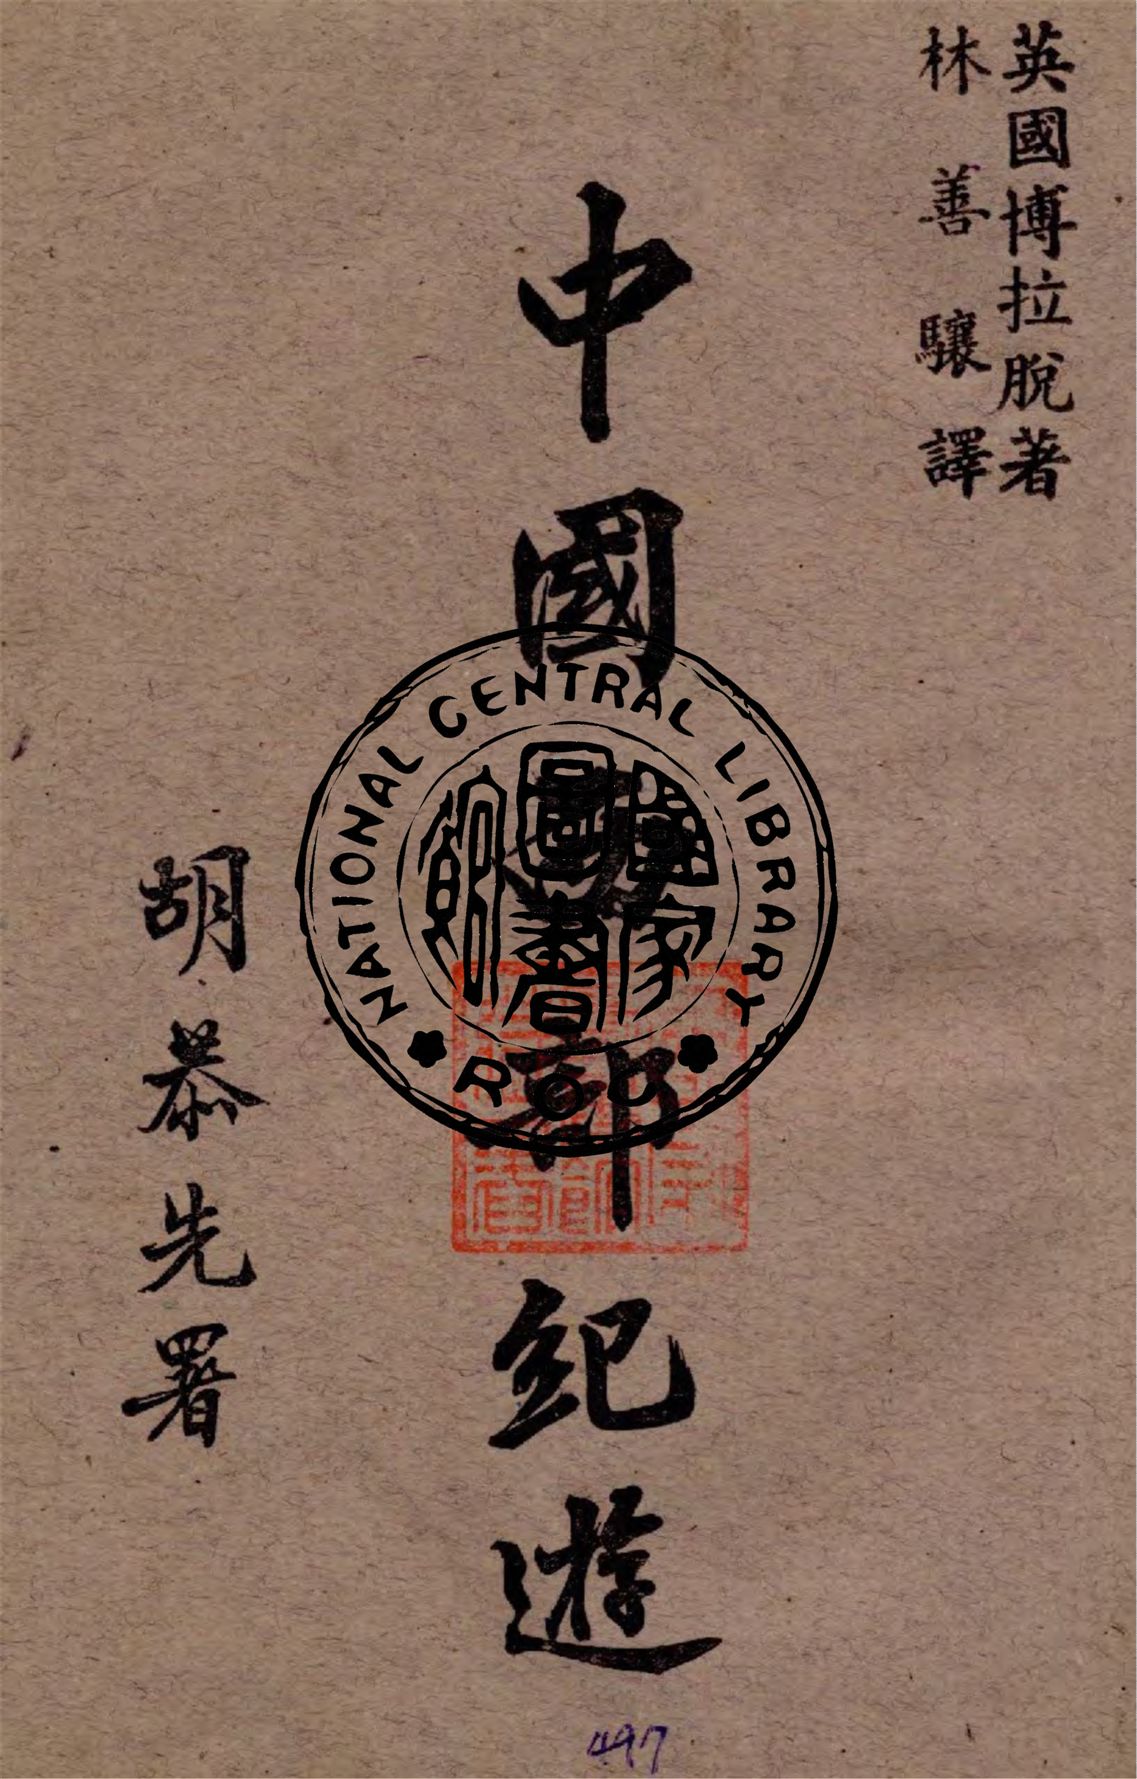 英國博拉脫著
林善驤譯
中國部紀遊
胡恭先署
NATIONAL CENTRAL LIBRARY
國家圖書館
ROC
497